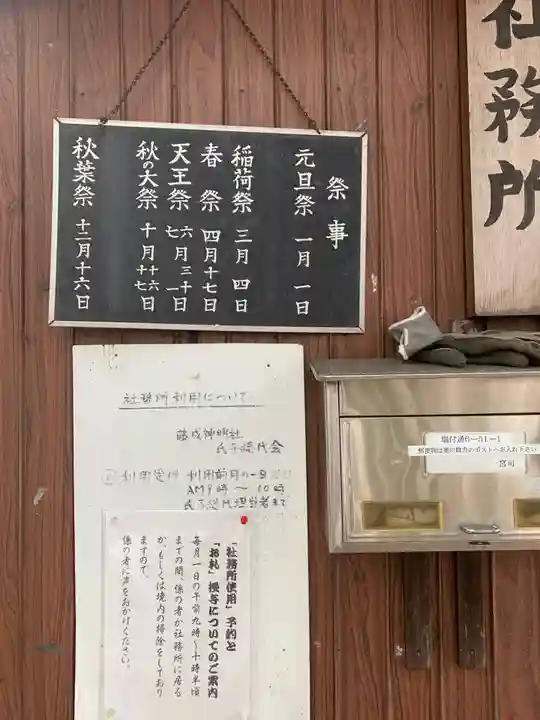 社務所
祭事
元旦祭 一月一日
稲荷祭 三月四日
春祭 四月十七日
天王祭 六月三十日 七月一日
秋の大祭 十月十六 十七日
秋葉祭 十二月十六日
社務所利用について
藤成神明社
氏子総代会
利用受付 利用前月の一日
AM9時〜10時
氏子総代担当者まで
「社務所使用」予約と
「お札」授与についてのご案内
毎月一日の午前九時〜十時半頃
までの間、係の者が社務所に居る
か、もしくは境内の掃除をしており
ますので、
係の者に声をおかけください。
塩付通6-51-1
郵便物は裏の自宅のポストへお入れ下さい
宮司